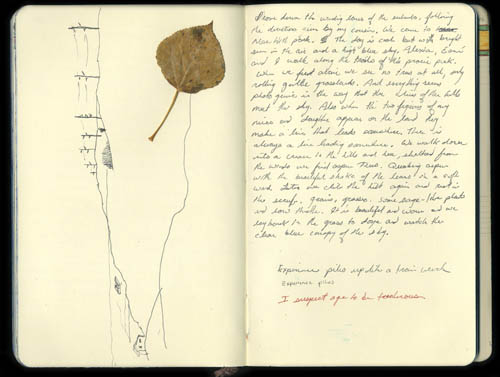 down the windy lanes of the suburbs, following
the directions given by my cousin. We come to
Nose Hill park. The day is cool but with bright
sun in the air and a high blue sky.
and I walk along the trails of this prairie park.
When we first arrive we see no trees at all, only
rolling gentle grasslands. And everything seems
photogenic in the way that the lines of the hills
meet the sky. Also when the two figures of my
niece and daughter appear on the land they
make a line that leads somewhere. There is
always a line leading somewhere. We walk down
into a crease in the hills and here, sheltered from
the winds we find aspen trees. Quaking aspen
with the beautiful shake of the leaves in a soft
wind. Later we climb the hill again and rest in
the scrub, grains, grasses, some sage-like plants
and some thistle. It is beautiful and warm and we
lay back in the grass to doze and watch the
clear blue canopy of the sky.
Experience piles up like a train wreck
Experience piles
I suspect age to be